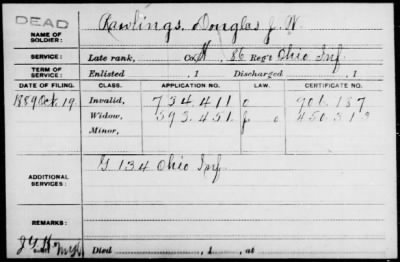 DEAD
NAME OF SOLDIER: Rawlings, Douglas J. W.
SERVICE: Late rank, Co. H, 86 Reg't Ohio Inf.
TERM OF SERVICE: Enlisted , 1 Discharged , 1
DATE OF FILING. CLASS. APPLICATION NO. LAW. CERTIFICATE NO.
1889 Oct. 19 Invalid, 734.411 901.187
Widow, 593.451 450.313
Minor,
ADDITIONAL SERVICES: G 134 Ohio Inf.
REMARKS:
Died , 1 , at